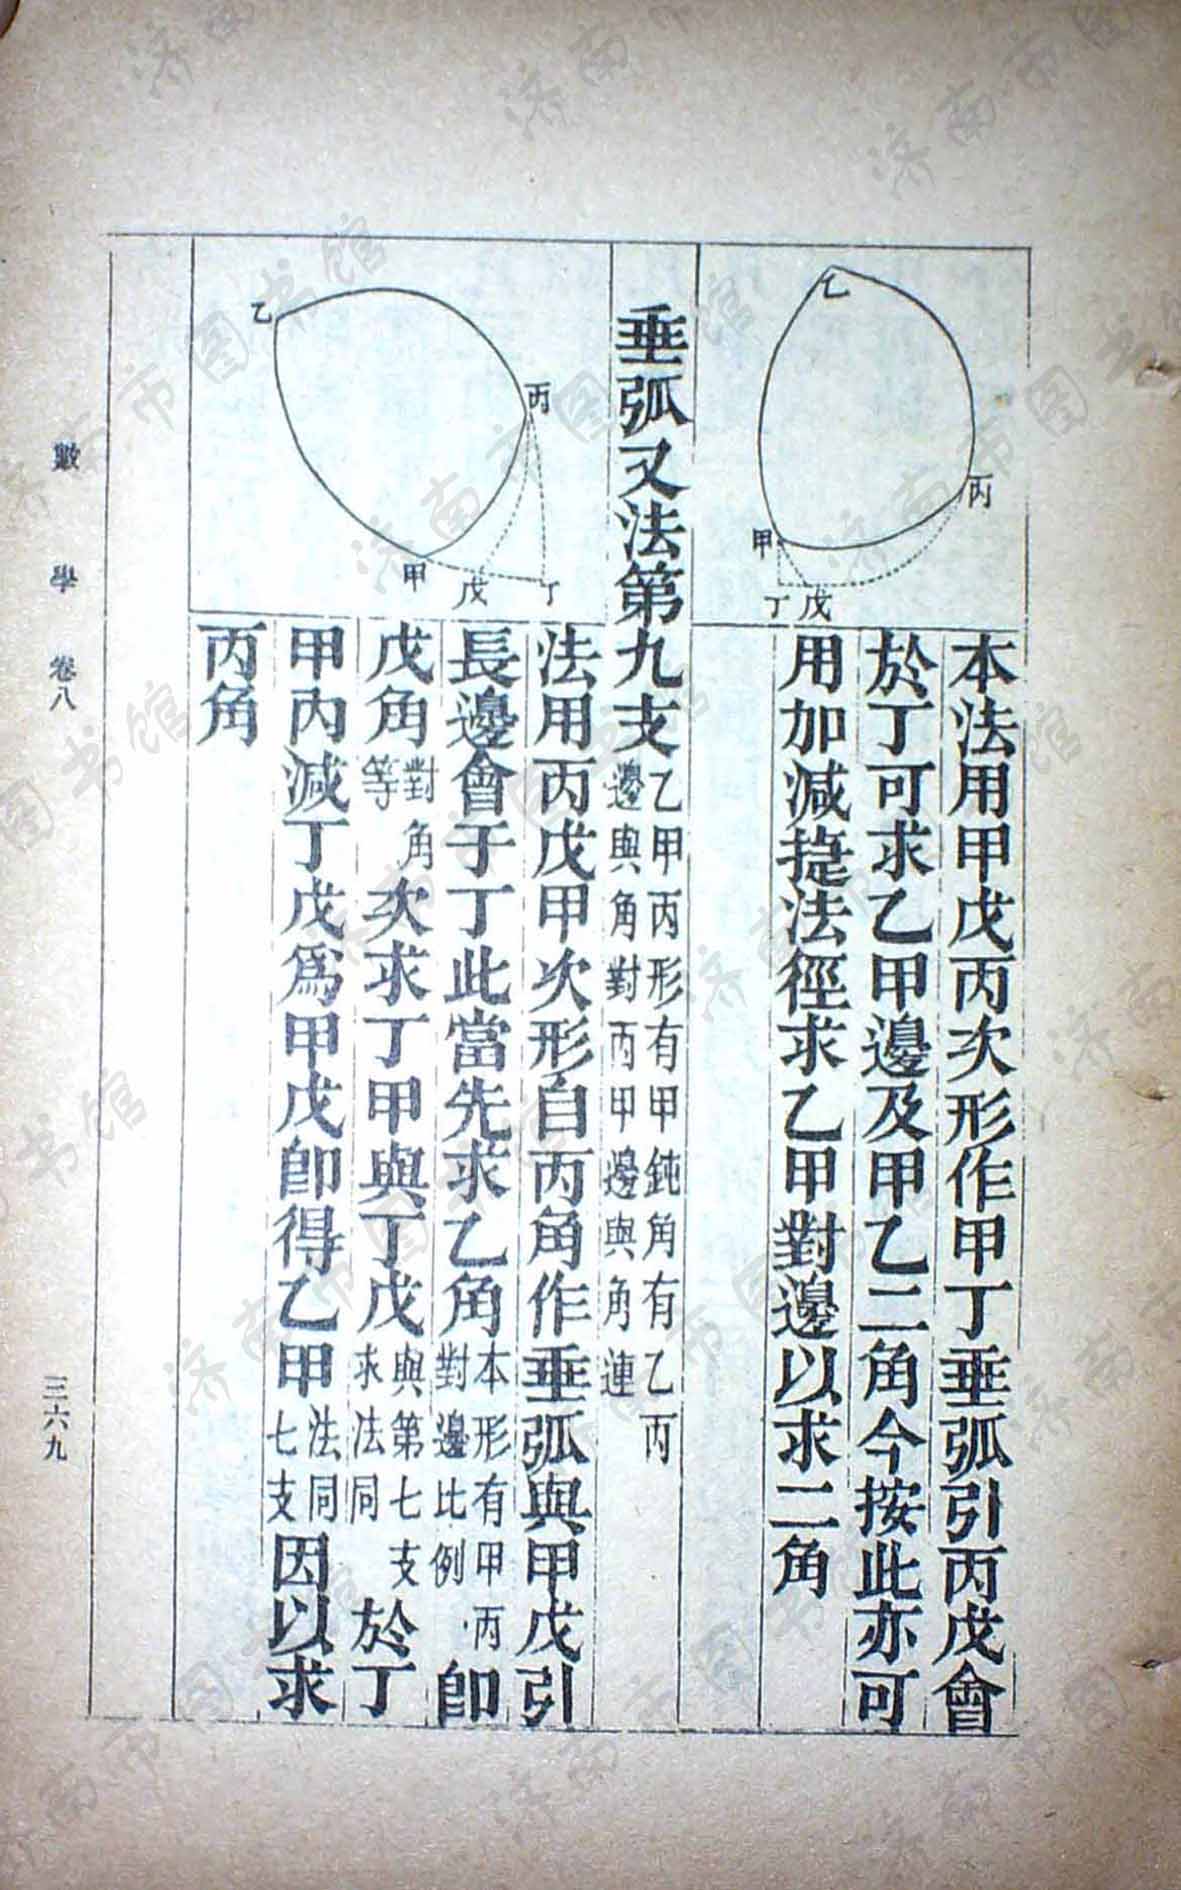 乙
丙
甲
丁戊
本法用甲戊丙次形作甲丁垂弧引丙戊會
於丁可求乙甲邊及甲乙二角今按此亦可
用加減捷法徑求乙甲對邊以求二角
垂弧又法第九支乙甲丙形有甲鈍角有乙丙
邊與角對丙甲邊與角連
乙
丙
甲
戊
丁
法用丙戊甲次形自丙角作垂弧與甲戊引
長邊會于丁此當先求乙角本形有甲丙
對邊比例
即
戊角對角
等
次求丁甲與丁戊與第七支
求法同
於丁
甲內減丁戊為甲戊卽得乙甲法同
七支
因以求
丙角
數學 卷八
三六九
济南市图书馆